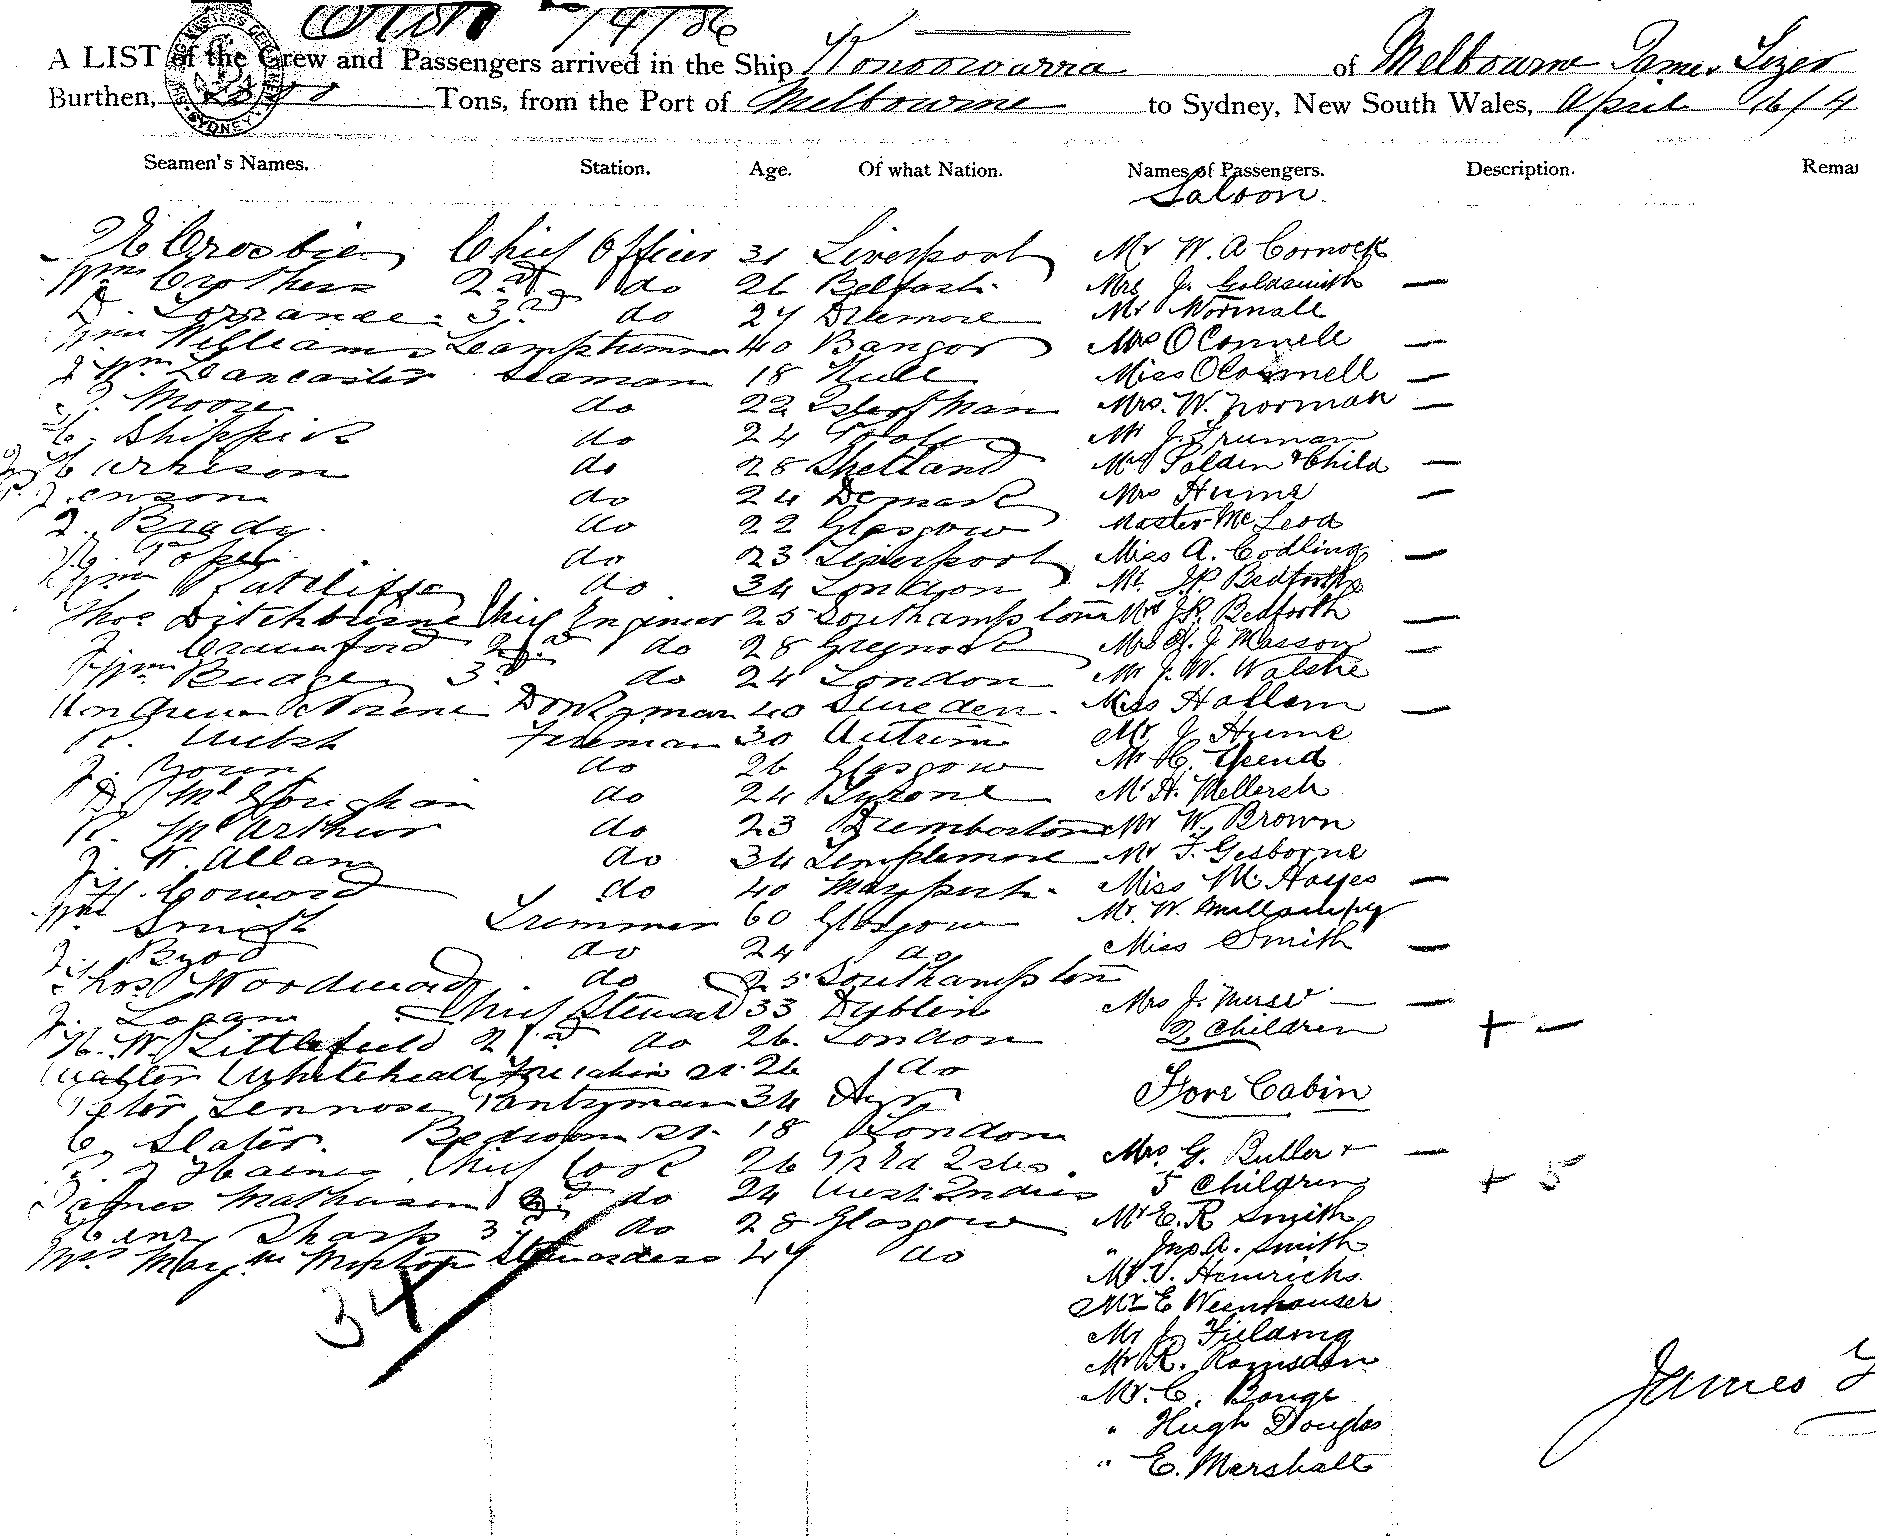 A LIST of the Crew and Passengers arrived in the Ship Konoowarra of Melbourne James
Burthen, Tons, from the Port of Melbourne to Sydney, New South Wales, April 16/4
Seamen's Names. Station. Age. Of what Nation. Names of Passengers. Description.
Saloon
Crosbie Chief Officer 31 Liverpool Mr W. A Cornock
Wm Crothers 2nd do 26 Belfast Mrs J. Goldsmith —
D. Lorrance 3rd do 27 Mr Wormall
Wm Williams Lamptrimmer 40 Bangor Mrs OConnell —
J Wm Lancaster Seaman 18 Hull Miss OConnell —
J. Moore do 22 Isle of Man Mrs. W. Norman —
do 24 Poole Mr J. Truman
do 28 Shetland Mrs Soldin & Child —
Jenson do 24 Demark Mrs Hume —
J. Brady do 22 Glasgow Master McLeod
do 23 Liverpool Miss A. Codling —
Wm Ratcliffe do 34 London Mr. J.R. Bedforth
Thos Ditchburne Chief Engineer 25 Southampton Mrs J.R. Bedforth —
J. Crawford 2nd do 28 Greenock Mrs J. Masson —
Wm Budge 3rd do 24 London Mr J. W. Walshe
Donkyman 40 Sweden Miss Hallam —
R. Welsh Fireman 30 Antrim Mr J Hume
J. Young do 26 Glasgow Mr C. Spend
do 24 Tyrone Mr H. Mellersh
R. McArthur do 23 Dumbarton Mr W. Brown
J. W. Allan do 34 Templemore Mr F. Gisborne
H. Coward do 40 Maryport Miss M Hayes —
Wm Smith Trimmer 60 Glasgow Mr. W.
J. Byod do 24 do Miss Smith —
Thos Woodward do 25 Southampton
J. Logan Chief Steward 33 Dublin Mrs J. —
H. W. Littlefield 2nd do 26 London 2 Children + —
Walter Whitehead Fore cabin st. 26 do
Peter Lennose Pantryman 34 Ayr Fore Cabin
C. Slater. Bedroom st. 18 London
Haines Chief Cook 26 Mrs. G. Butler + —
James Mathieson 2nd do 24 West Indies 5 Children + 5
Henry Sharp 3rd do 28 Glasgow Mr E. R Smith
Mrs Stewardess 47 do " Jno A. Smith
34 Mr V. Heinrichs
Mr E Weinhauser
Mr J. Fielding
Mr R. Ramsden
Mr. C. Bonge
James
" Hugh Douglas
" E. Marshall